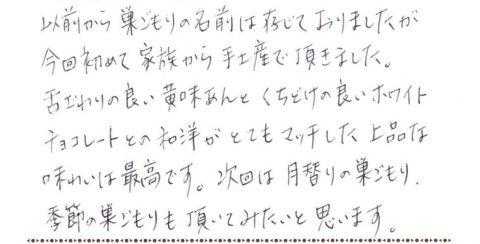 以前から巣ごもりの名前は存じておりましたが
今回初めて家族から手土産で頂きました。
舌ざわりの良い黄味あんとくちどけの良いホワイト
チョコレートとの和洋がとてもマッチした上品な
味わいは最高です。次回は月替りの巣ごもり、
季節の巣ごもりも頂いてみたいと思います。